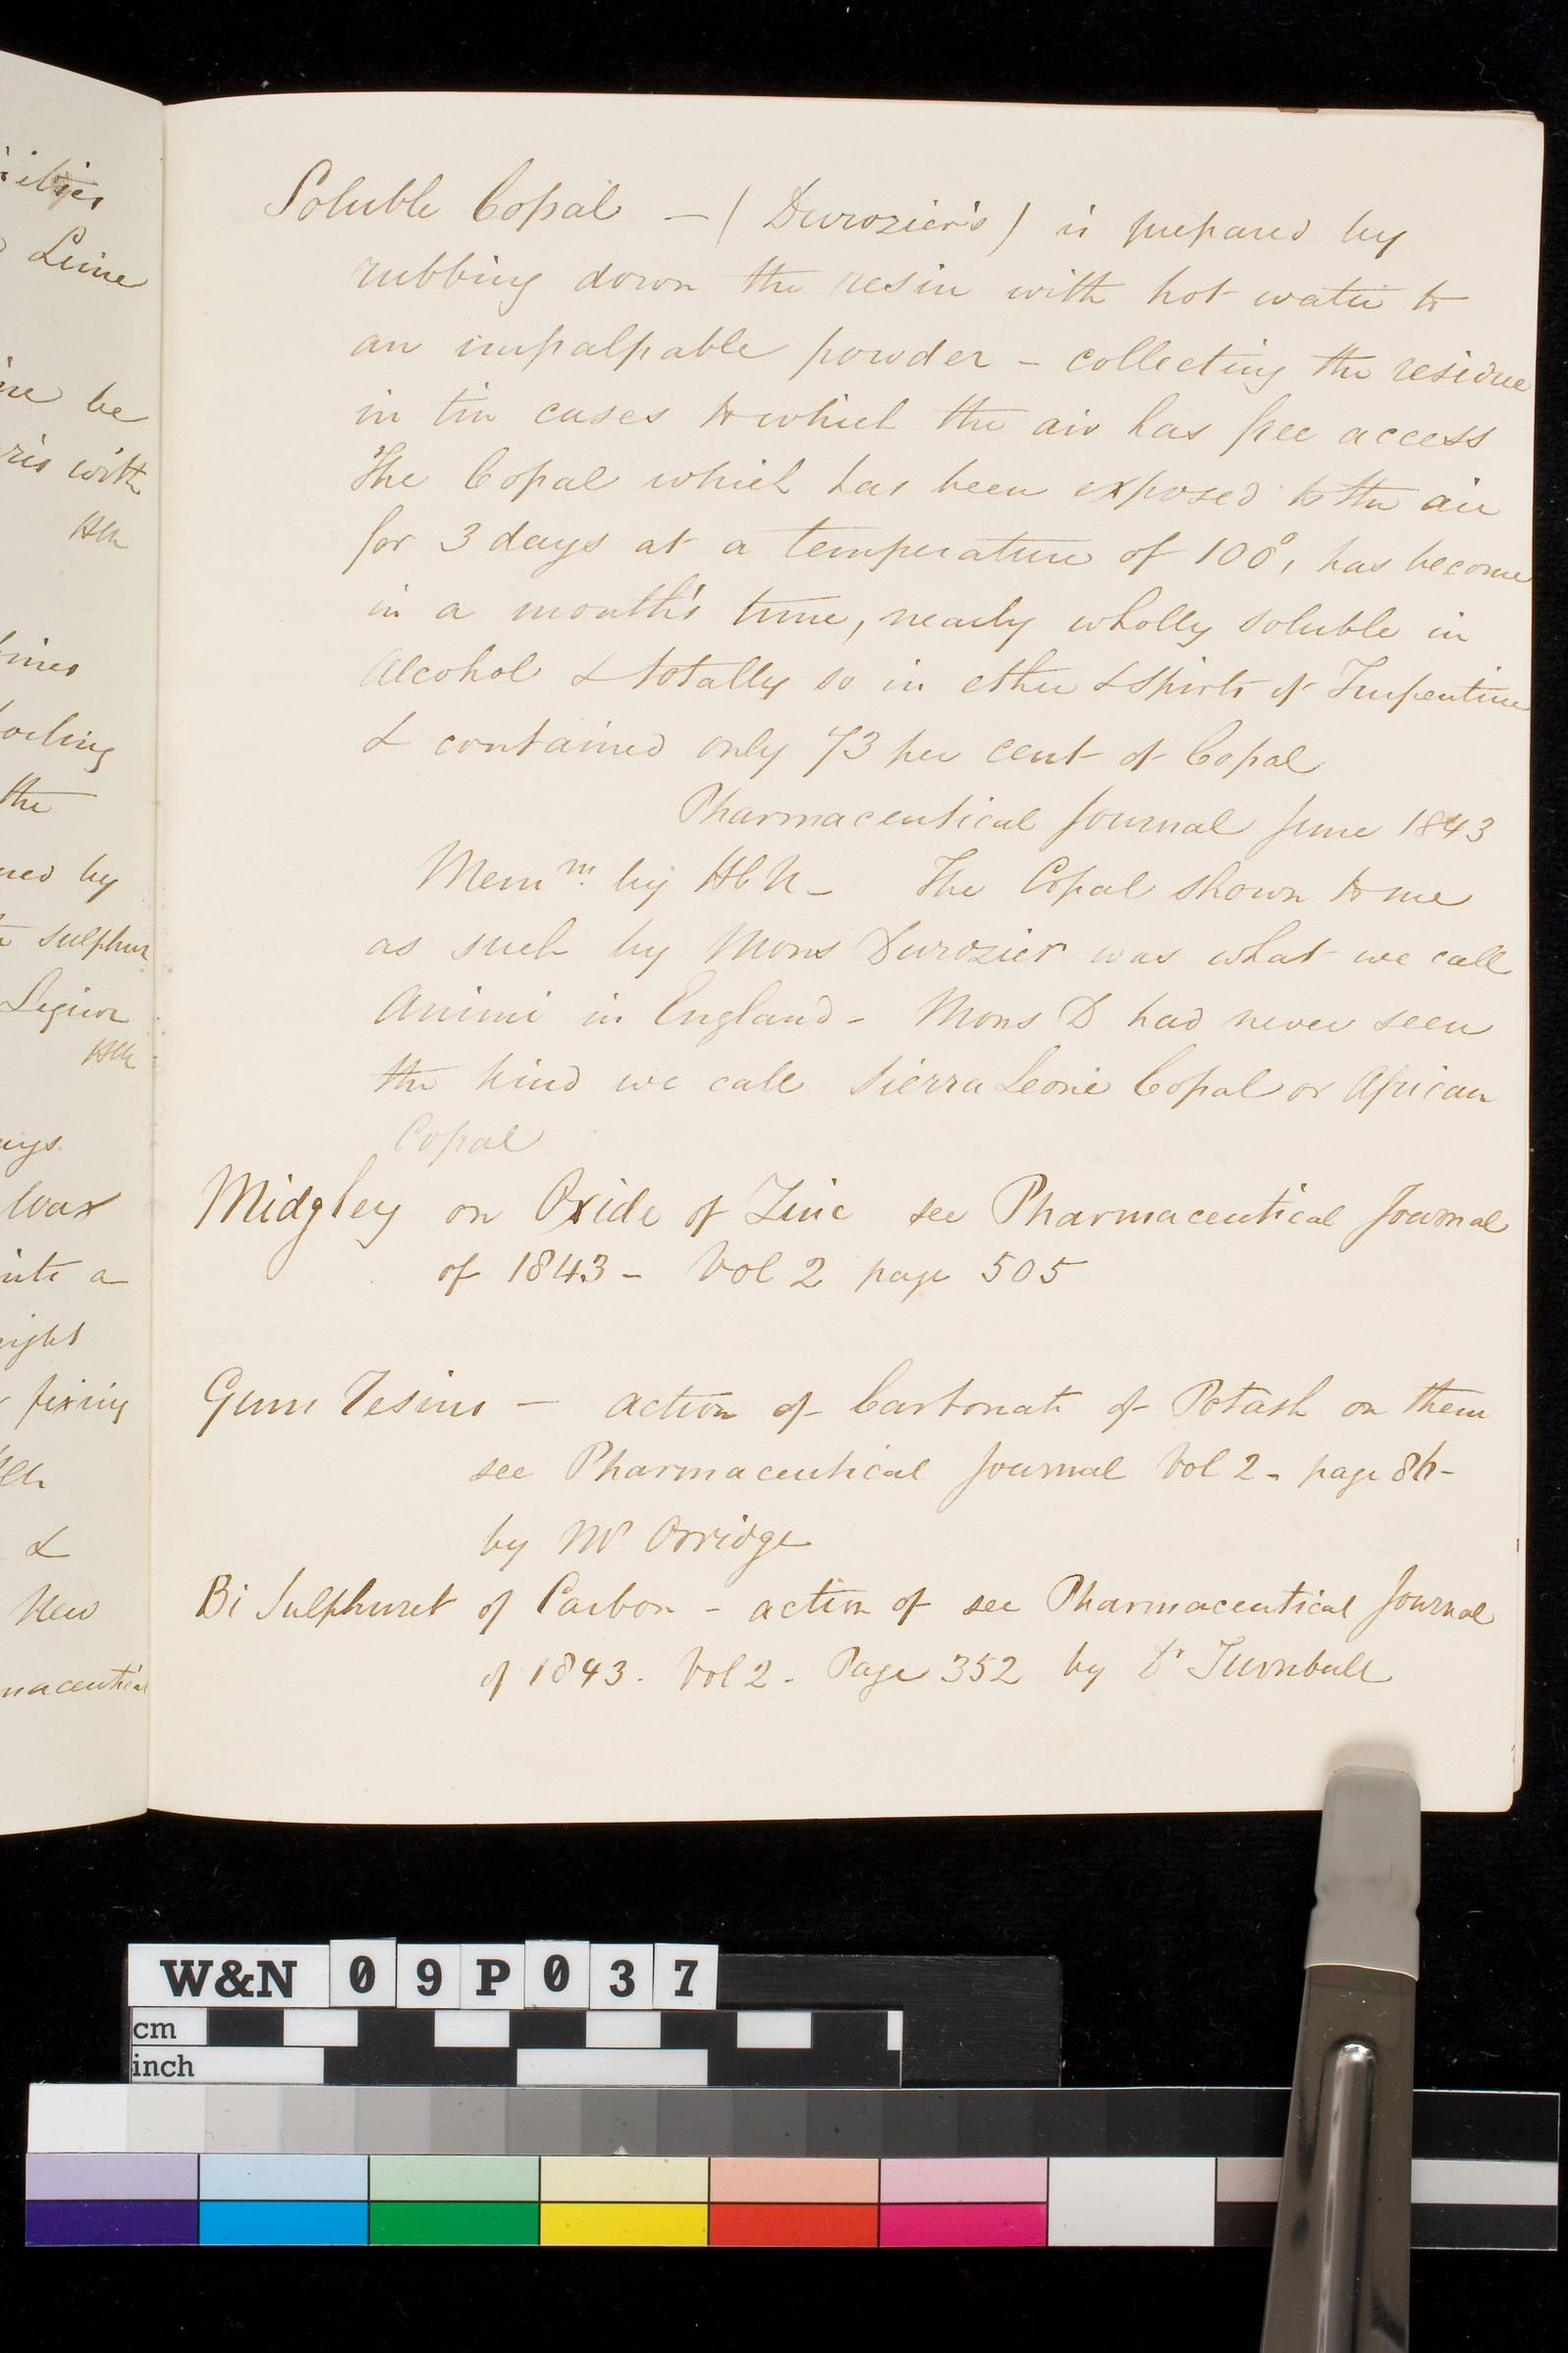 Soluble Copal — (Durozier's) is prepared by
rubbing down the resin with hot water to
an impalpable powder – collecting the residue
in tin cases to which the air has free access
The Copal which has been exposed to the air
for 3 days at a temperature of 100°, has become
in a month's time, nearly wholly soluble in
Alcohol & totally so in ether & spirits of Turpentine
& contained only 73 per cent of Copal
Pharmaceutical Journal June 1843
Mem.m by HCN – The Copal shown to me
as such by Mons Durozier was what we call
Animi in England – Mons D had never seen
the kind we call Sierra Leone Copal or African
Copal
Midgley on Oxide of Zinc see Pharmaceutical Journal
of 1843 – Vol 2 page 505
Gum Resins — action of Carbonate of Potash on them
see Pharmaceutical Journal Vol 2 – page 86 –
by Mr Orridge
Bi Sulphuret of Carbon – action of see Pharmaceutical Journal
of 1843. Vol 2 – Page 352 by Dr Turnbull
Lime
be
with
the
by
sulphur
Liquor
Wax
a
fixing
&
New
W&N 09P037
cm
inch